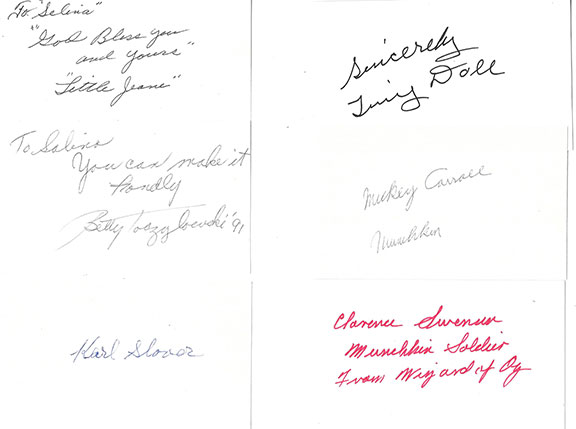 To "Selina"
"God Bless you
and yours"
"Little Jeane"
Sincerely
Tiny Doll
To Salina
You can make it
fondly
Betty '91
Mickey Carroll
Munchkin
Karl Slover
Clarence Swensen
Munchkin Soldier
From Wizard of Oz